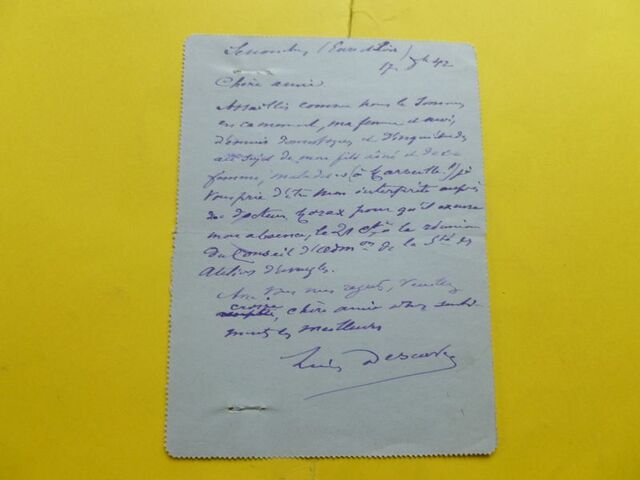 Senonches (Eure et Loir)
17 42
Chère amie
Assaillis comme nous le sommes
en ce moment, ma femme et moi
d'ennuis domestiques et d'inquiétudes
au sujet de mon fils aîné et de sa
femme, malades (à Marseille !) je
vous prie d'être mon interprète auprès
du docteur pour qu'il excuse
mon absence, le 21 ct, à la réunion
du Conseil d'adm on de la Sté des
Ateliers d'aveugles.
Avec tous mes regrets, veuillez
croire
chère amie à mes senti-
ments les meilleurs
Louis Descaves